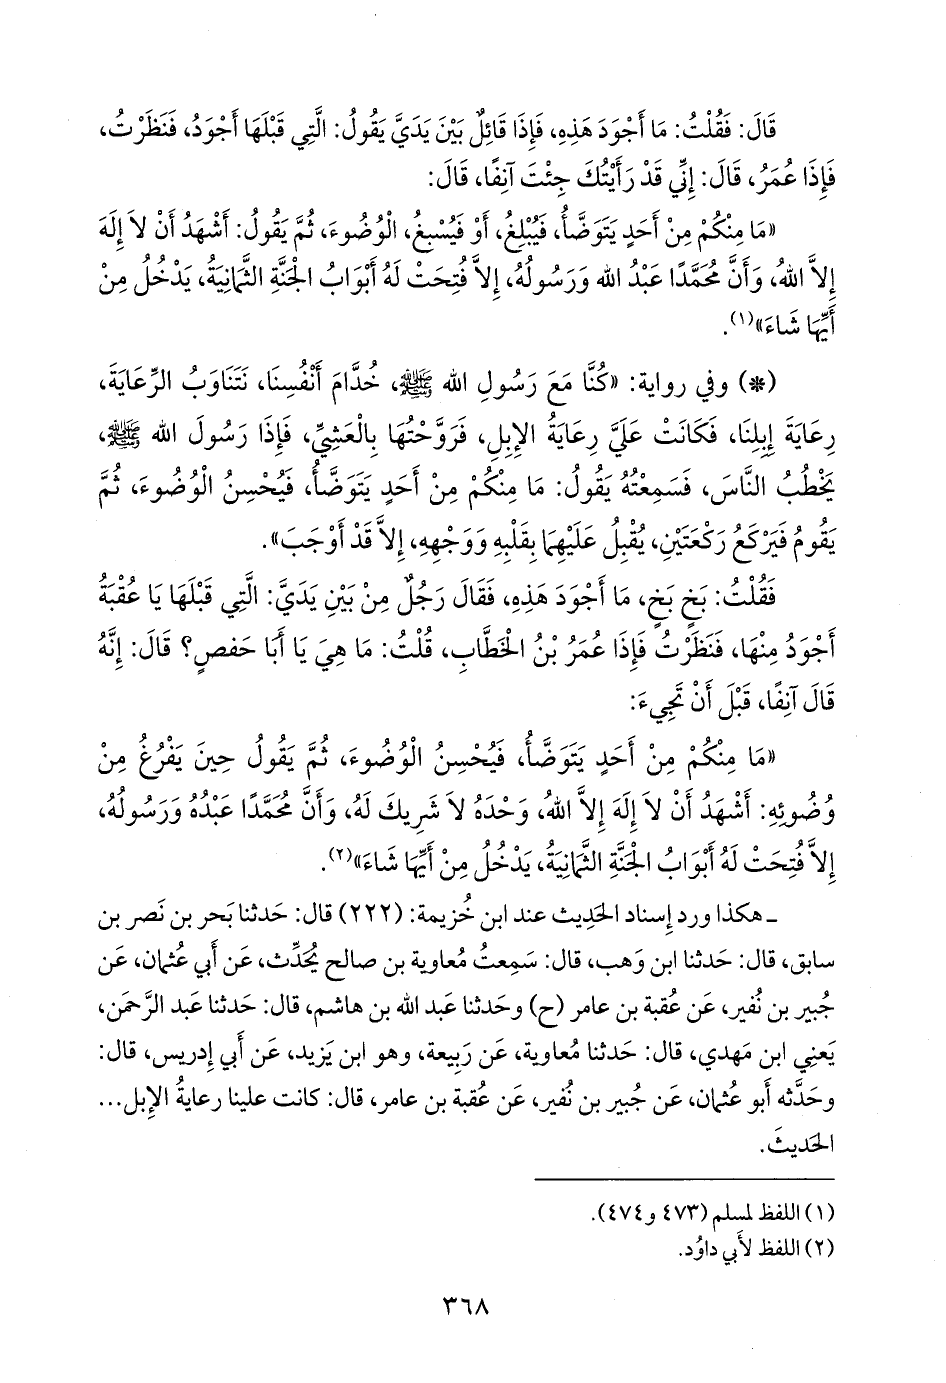 قَالَ: فَقُلْتُ: مَا أَجْوَدَ هَذِهِ، فَإِذَا قَائِلٌ بَيْنَ يَدَيَّ يَقُولُ: الَّتِي قَبْلَهَا أَجْوَدُ، فَنَظَرْتُ،
فَإِذَا عُمَرُ، قَالَ: إِنِّي قَدْ رَأَيْتُكَ جِئْتَ آنِفًا، قَالَ:
«مَا مِنْكُمْ مِنْ أَحَدٍ يَتَوَضَّأُ، فَيُبْلِغُ، أَوْ فَيُسْبِغُ، الْوُضُوءَ، ثُمَّ يَقُولُ: أَشْهَدُ أَنْ لاَ إِلَهَ
إِلاَّ اللهُ، وَأَنَّ مُحَمَّدًا عَبْدُ الله وَرَسُولُهُ، إِلاَّ فُتِحَتْ لَهُ أَبْوَابُ الْجَنَّةِ الثَّمَانِيَةُ، يَدْخُلُ مِنْ
أَيِّهَا شَاءَ»(١).
(*) وفي رواية: «كُنَّا مَعَ رَسُولِ الله ﷺ، خُدَّامَ أَنْفُسِنَا، نَتَنَاوَبُ الرِّعَايَةَ،
رِعَايَةَ إِبِلِنَا، فَكَانَتْ عَلَيَّ رِعَايَةُ الإِبِلِ، فَرَوَّحْتُهَا بِالْعَشِيِّ، فَإِذَا رَسُولَ الله ﷺ،
يَخْطُبُ النَّاسَ، فَسَمِعْتُهُ يَقُولُ: مَا مِنْكُمْ مِنْ أَحَدٍ يَتَوَضَّأُ، فَيُحْسِنُ الْوُضُوءَ، ثُمَّ
يَقُومُ فَيَرْكَعُ رَكْعَتَيْنِ، يُقْبِلُ عَلَيْهِمَا بِقَلْبِهِ وَوَجْهِهِ، إِلاَّ قَدْ أَوْجَبَ».
فَقُلْتُ: بَخٍ بَخٍ، مَا أَجْوَدَ هَذِهِ، فَقَالَ رَجُلٌ مِنْ بَيْنِ يَدَيَّ: الَّتِي قَبْلَهَا يَا عُقْبَةُ
أَجْوَدُ مِنْهَا، فَنَظَرْتُ فَإِذَا عُمَرُ بْنُ الْخَطَّابِ، قُلْتُ: مَا هِيَ يَا أَبَا حَفصٍ؟ قَالَ: إِنَّهُ
قَالَ آنِفًا، قَبْلَ أَنْ تَجِيءَ:
«مَا مِنْكُمْ مِنْ أَحَدٍ يَتَوَضَّأُ، فَيُحْسِنُ الْوُضُوءَ، ثُمَّ يَقُولُ حِينَ يَفْرُغُ مِنْ
وُضُوئِهِ: أَشْهَدُ أَنْ لاَ إِلَهَ إِلاَّ اللهُ، وَحْدَهُ لاَ شَرِيكَ لَهُ، وَأَنَّ مُحَمَّدًا عَبْدُهُ وَرَسُولُهُ،
إِلاَّ فُتِحَتْ لَهُ أَبْوَابُ الْجَنَّةِ الثَّمَانِيَةُ، يَدْخُلُ مِنْ أَيِّهَا شَاءَ»(٢).
ـ هكذا ورد إِسناد الحَديث عند ابن خُزيمة: (٢٢٢) قال: حَدثنا بَحر بن نَصر بن
سابق، قال: حَدثنا ابن وَهب، قال: سَمِعتُ مُعاوية بن صالح يُحَدِّث، عَن أَبي عُثمان، عَن
جُبير بن نُفير، عَن عُقبة بن عامر (ح) وحَدثنا عَبد الله بن هاشم، قال: حَدثنا عَبد الرَّحمَن،
يَعنِي ابن مَهدي، قال: حَدثنا مُعاوية، عَن رَبيعة، وهو ابن يَزيد، عَن أَبي إِدريس، قال:
وحَدَّثه أَبو عُثمان، عَن جُبير بن نُفير، عَن عُقبة بن عامر، قال: كانت علينا رعايةُ الإِبل...
الحَديثَ.
(١) اللفظ لمسلم (٤٧٣ و٤٧٤).
(٢) اللفظ لأَبي داوُد.
٣٦٨